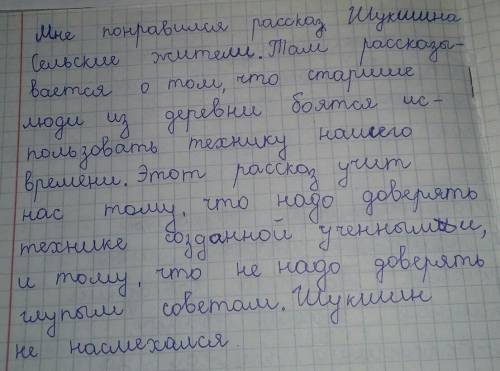 Мне понравился рассказ Шукшина
Сельские жители. Там рассказы-
вается о том, что старшие
люди из деревни боятся ис-
пользовать технику нашего
времени. Этот рассказ учит
нас тому, что надо доверять
технике созданной ученными,
и тому, что не надо доверять
глупым советам. Шукшин
не насмехался